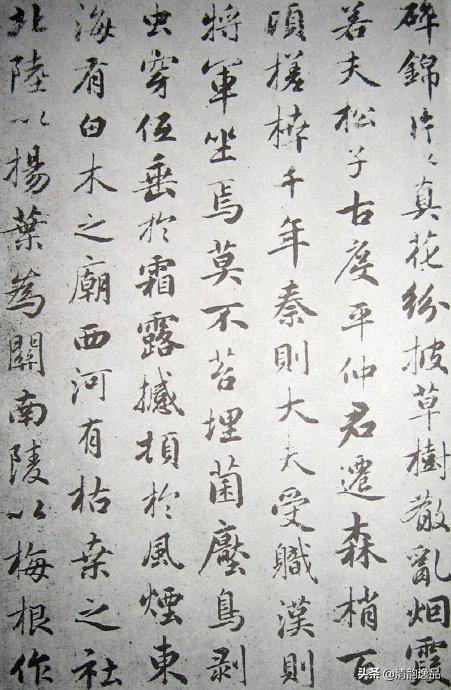 碎錦片々真花紛披草樹散亂烟霞
若夫松子古度平仲君遷森梢百
頃槎枿千年秦則大夫受職漢則
將軍坐焉莫不苔埋菌壓鳥剥
虫穿低垂於霜露撼頓於風煙東
海有白木之廟西河有枯桒之社
北陸以揚葉為關南陵以梅根作
头条 @清韵逸品